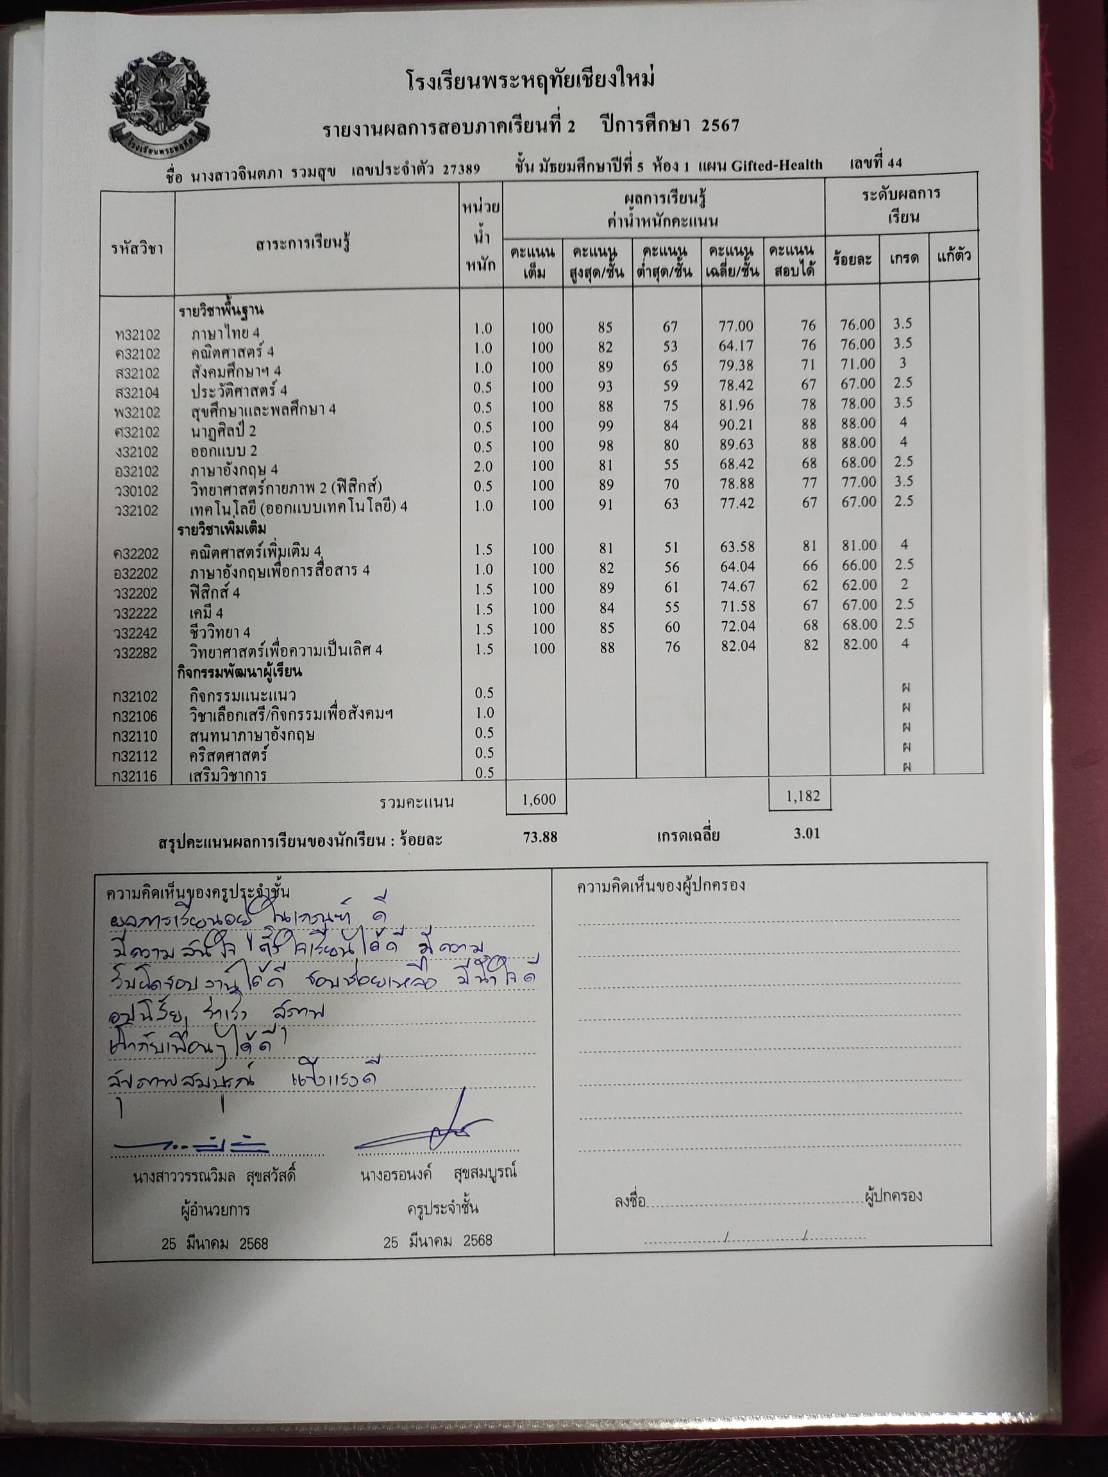 โรงเรียนพระหฤทัย
โรงเรียนพระหฤทัยเชียงใหม่
รายงานผลการสอบภาคเรียนที่ 2 ปีการศึกษา 2567
ชื่อ นางสาวจินตภา รวมสุข เลขประจำตัว 27389 ชั้น มัธยมศึกษาปีที่ 5 ห้อง 1 แผน Gifted-Health เลขที่ 44
รหัสวิชา สาระการเรียนรู้ หน่วยน้ำหนัก ผลการเรียนรู้ ค่าน้ำหนักคะแนน ระดับผลการเรียน
คะแนนเต็ม คะแนนสูงสุด/ชั้น คะแนนต่ำสุด/ชั้น คะแนนเฉลี่ย/ชั้น คะแนนสอบได้ ร้อยละ เกรด แก้ตัว
รายวิชาพื้นฐาน
ท32102 ภาษาไทย 4 1.0 100 85 67 77.00 76 76.00 3.5
ค32102 คณิตศาสตร์ 4 1.0 100 82 53 64.17 76 76.00 3.5
ส32102 สังคมศึกษาฯ 4 1.0 100 89 65 79.38 71 71.00 3
ส32104 ประวัติศาสตร์ 4 0.5 100 93 59 78.42 67 67.00 2.5
พ32102 สุขศึกษาและพลศึกษา 4 0.5 100 88 75 81.96 78 78.00 3.5
ศ32102 นาฏศิลป์ 2 0.5 100 99 84 90.21 88 88.00 4
ง32102 ออกแบบ 2 0.5 100 98 80 89.63 88 88.00 4
อ32102 ภาษาอังกฤษ 4 2.0 100 81 55 68.42 68 68.00 2.5
ว30102 วิทยาศาสตร์กายภาพ 2 (ฟิสิกส์) 0.5 100 89 70 78.88 77 77.00 3.5
ว32102 เทคโนโลยี (ออกแบบเทคโนโลยี) 4 1.0 100 91 63 77.42 67 67.00 2.5
รายวิชาเพิ่มเติม
ค32202 คณิตศาสตร์เพิ่มเติม 4 1.5 100 81 51 63.58 81 81.00 4
อ32202 ภาษาอังกฤษเพื่อการสื่อสาร 4 1.0 100 82 56 64.04 66 66.00 2.5
ว32202 ฟิสิกส์ 4 1.5 100 89 61 74.67 62 62.00 2
ว32222 เคมี 4 1.5 100 84 55 71.58 67 67.00 2.5
ว32242 ชีววิทยา 4 1.5 100 85 60 72.04 68 68.00 2.5
ว32282 วิทยาศาสตร์เพื่อความเป็นเลิศ 4 1.5 100 88 76 82.04 82 82.00 4
กิจกรรมพัฒนาผู้เรียน
ก32102 กิจกรรมแนะแนว 0.5 ผ
ก32106 วิชาเลือกเสรี/กิจกรรมเพื่อสังคมฯ 1.0 ผ
ก32110 สนทนาภาษาอังกฤษ 0.5 ผ
ก32112 คริสตศาสตร์ 0.5 ผ
ก32116 เสริมวิชาการ 0.5 ผ
รวมคะแนน 1,600 1,182
สรุปคะแนนผลการเรียนของนักเรียน : ร้อยละ 73.88 เกรดเฉลี่ย 3.01
ความคิดเห็นของครูประจำชั้น ความคิดเห็นของผู้ปกครอง
ผลการเรียนอยู่ในเกณฑ์ ดี
มีความสนใจ ตั้งใจเรียนได้ดี มีความ
รับผิดชอบงานได้ดี ชอบช่วยเหลือ มีน้ำใจดี
อุปนิสัย ร่าเริง สุภาพ
เข้ากับเพื่อนๆ ได้ดี
สุขภาพสมบูรณ์ แข็งแรงดี
นางสาววรรณวิมล สุขสวัสดิ์ นางอรอนงค์ สุขสมบูรณ์
ผู้อำนวยการ ครูประจำชั้น
25 มีนาคม 2568 25 มีนาคม 2568
ลงชื่อ ผู้ปกครอง
/ /